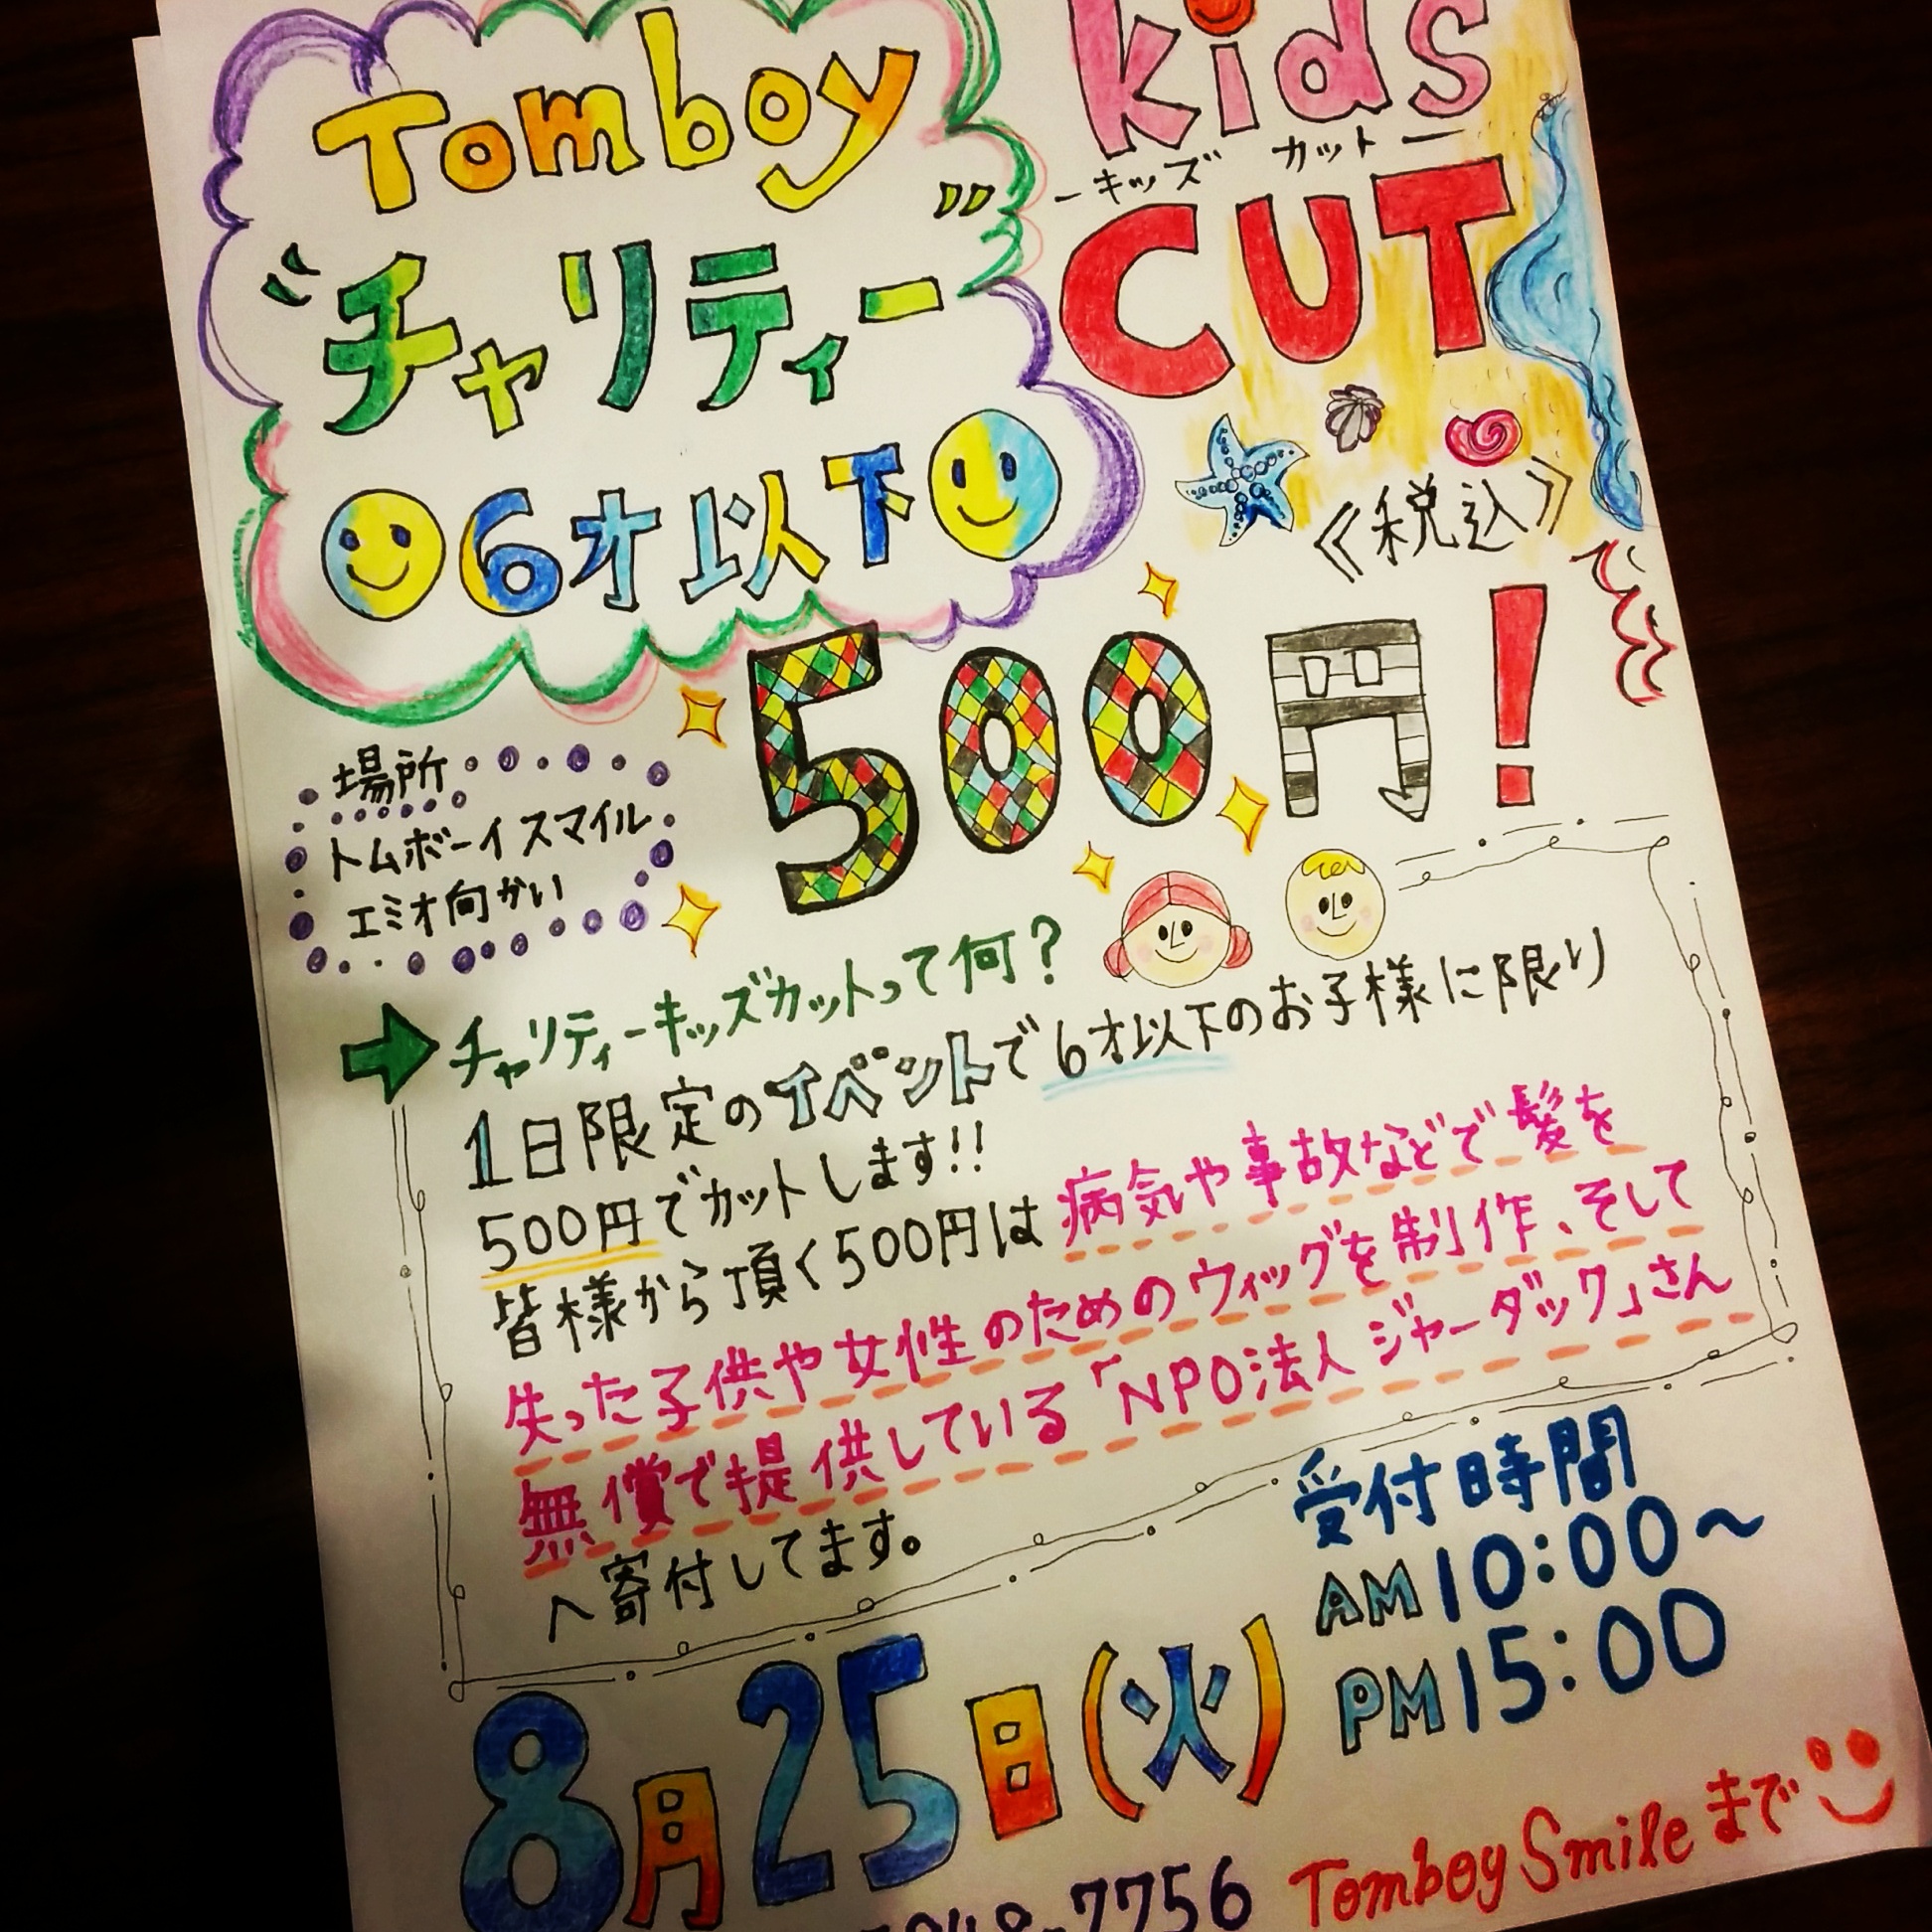 Tomboy
"チャリティー"
6才以下
kids
ーキッズ カットー
CUT
《税込》
500円!
場所
トムボーイスマイル
エミオ向かい
チャリティーキッズカットって何?
1日限定のイベントで6才以下のお子様に限り
500円でカットします!!
皆様から頂く500円は病気や事故などで髪を
失った子供や女性のためのウィッグを制作、そして
無償で提供している「NPO法人ジャーダック」さん
へ寄付してます。
受付時間
AM10:00~
PM15:00
8月25日(火)
48-7756
Tomboy Smileまで